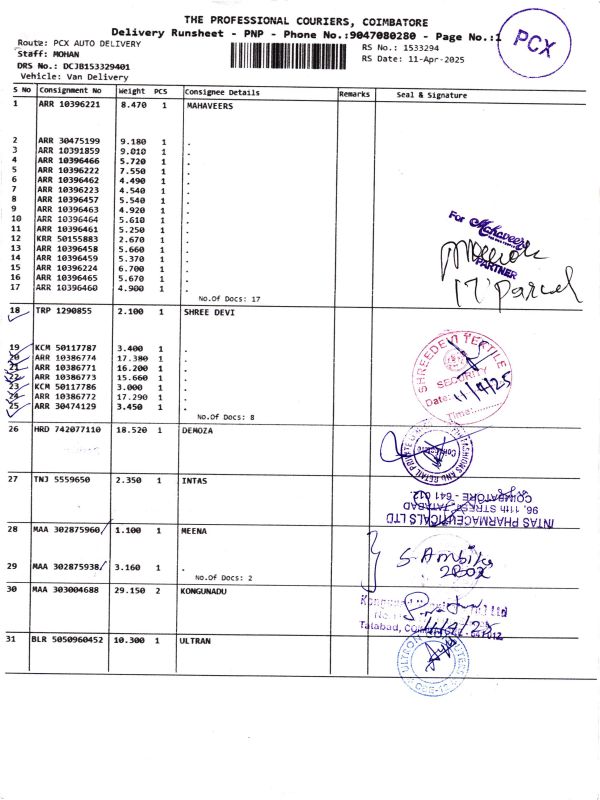 THE PROFESSIONAL COURIERS, COIMBATORE
Delivery Runsheet - PNP - Phone No.:9047080280 - Page No.:1
PCX
Route: PCX AUTO DELIVERY
RS No.: 1533294
Staff: MOHAN
RS Date: 11-Apr-2025
DRS No.: DCJB153329401
Vehicle: Van Delivery
S No Consignment No Weight PCS Consignee Details Remarks Seal & Signature
1 ARR 10396221 8.470 1 MAHAVEERS
2 ARR 30475199 9.180 1 .
3 ARR 10391859 9.010 1 .
4 ARR 10396466 5.720 1 .
5 ARR 10396222 7.550 1 .
6 ARR 10396462 4.490 1 .
7 ARR 10396223 4.540 1 .
8 ARR 10396457 5.540 1 .
9 ARR 10396463 4.920 1 .
10 ARR 10396464 5.610 1 .
11 ARR 10396461 5.250 1 .
12 KRR 50155883 2.670 1 .
13 ARR 10396458 5.660 1 .
14 ARR 10396459 5.370 1 .
15 ARR 10396224 6.700 1 .
16 ARR 10396465 5.670 1 .
17 ARR 10396460 4.900 1 .
For Mahaveers
PARTNER
17 Parcel
No.Of Docs: 17
18 TRP 1290855 2.100 1 SHREE DEVI
19 KCM 50117787 3.400 1 .
20 ARR 10386774 17.380 1 .
21 ARR 10386771 16.200 1 .
22 ARR 10386773 15.660 1 .
23 KCM 50117786 3.000 1 .
24 ARR 10386772 17.290 1 .
25 ARR 30474129 3.450 1 .
SHREEDEVI TEXTILE
SECURITY
Date: 11/4/25
Time:
No.Of Docs: 8
26 HRD 742077110 18.520 1 DEMOZA
FASHIONS AND RETAIL PRIVATE
Coimbatore
27 TNJ 5559650 2.350 1 INTAS
INTAS PHARMACEUTICALS LTD
96, 11th STREET, TATABAD
COIMBATORE - 641 012.
28 MAA 302875960 1.100 1 MEENA
29 MAA 302875938 3.160 1 .
S. Ambika
2 Box
No.Of Docs: 2
30 MAA 303004688 29.150 2 KONGUNADU
Tatabad, Coimbatore - 641012
11/4/25
31 BLR 5050960452 10.300 1 ULTRAN